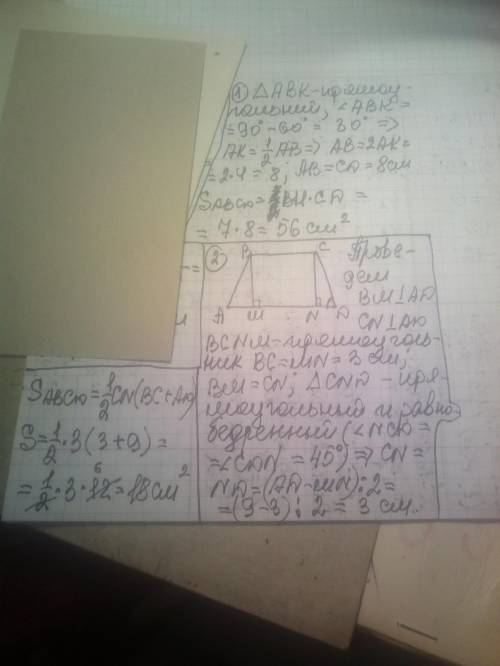 ① △ABK-прямоу-
гольный, ∠ABK =
= 90° - 60° = 30° =>
AK = 1/2 AB => AB = 2AK =
= 2·4 = 8; AB = CD = 8 см
S ABCD = BH·CD =
= 7·8 = 56 см²
② B C Прове-
дем
BM⊥AD
A M N D CN⊥AD
BCNM - прямоуголь-
ник BC = MN = 3 см,
BM = CN, △CND - пря-
моугольный и равно-
бедренный (∠NCD =
= ∠CDN = 45°) => CN =
ND = (AD - MN) : 2 =
= (9-3) : 2 = 3 см.
S ABCD = 1/2 CN (BC + AD)
S = 1/2 · 3 (3 + 9) =
= 1/2 · 3 · 12 6 = 18 см²